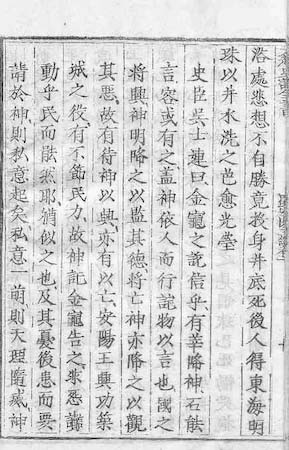 浴處悲想不自勝竟投身井底死後人得東海明
珠以井水洗之色愈光瑩
史臣吳士連曰金龜之說信乎有莘降神石能
言容或有之盖神依人而行託物以言也國之
將興神明降之以監其德將亡神亦降之以觀
其惡故有待神以興亦有以亡安陽王興功築
城之役有不節民力故神託金龜告之非怨讟
動乎民而能然耶猶似之也及其憂後患而要
請於神則私意起矣私意一萌則天理隨滅神